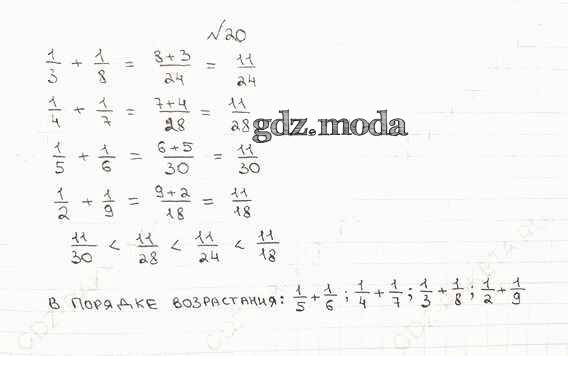 №20
1/3 + 1/8 = 8+3/24 = 11/24
1/4 + 1/7 = 7+4/28 = 11/28
gdz.moda
1/5 + 1/6 = 6+5/30 = 11/30
1/2 + 1/9 = 9+2/18 = 11/18
11/30 < 11/28 < 11/24 < 11/18
В ПОРЯДКЕ ВОЗРАСТАНИЯ: 1/5 + 1/6 ; 1/4 + 1/7 ; 1/3 + 1/8 ; 1/2 + 1/9